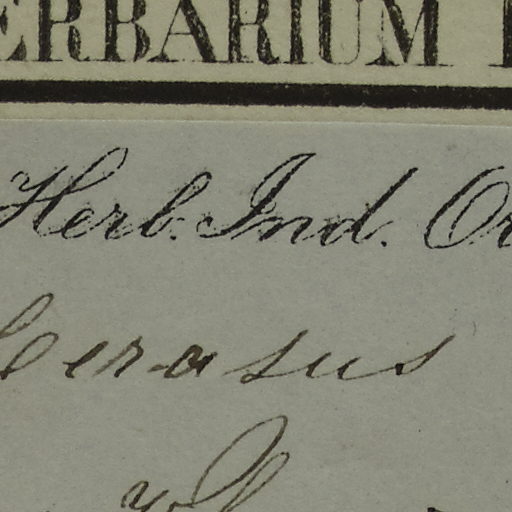 HERBARIUM
Herb. Ind. Or
Cerasus